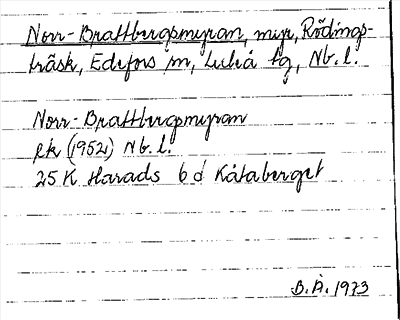 Norr-Brattbergsmyran, myr, Rödings-
träsk, Edefors sn, Luleå tg, Nb. l.
Norr-Brattbergsmyran
Ek (1952) Nb. l.
25 K Harads 6 d Kåtaberget
B.Å. 1973